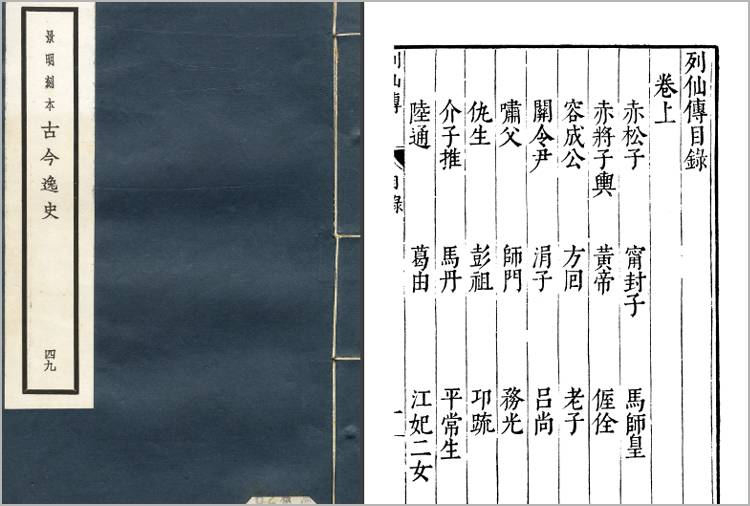 景明刻本
古今逸史
四九
列仙傳目錄
卷上
赤松子 甯封子 馬師皇
赤將子輿 黃帝 偓佺
容成公 方回 老子
關令尹 涓子 呂尚
嘯父 師門 務光
仇生 彭祖 邛疏
介子推 馬丹 平常生
陸通 葛由 江妃二女
列仙傳 目錄 一